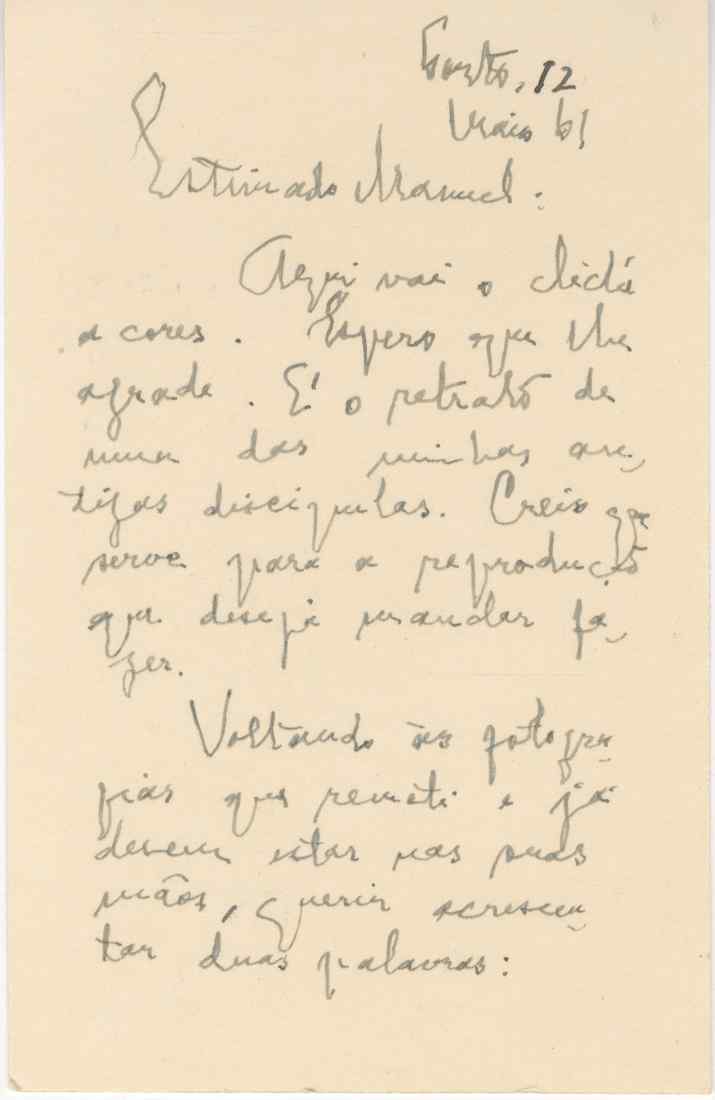 Porto, 12
Maio 61
Estimado Manuel:
Aqui vai o cliché
a cores. Espero que lhe
agrade. É o retrato de
uma das minhas an-
tigas discípulas. Creio que
serve para a reprodução
que deseja mandar fa-
zer.
Voltando às fotogra-
fias que remeti e já
devem estar nas suas
mãos, queria acrescen-
tar duas palavras: